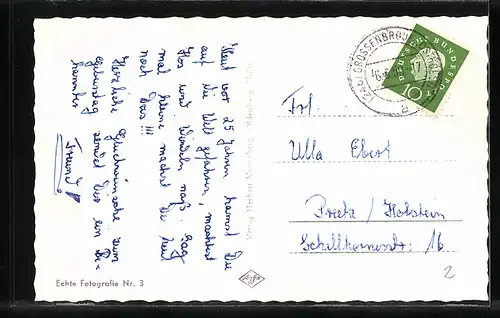 Heut vor 25 Jahren kamst Du
auf die Welt gefahren, machtest
Hos und Windeln naß. Sag
mal Kleine machst Du heut
noch Das !!!
Herzliche Glückwünsche zum
Geburtstag sendet Dir ein Be-
kannter
Freund
Echte Fotografie Nr. 3
GROSSENBRODE
DEUTSCHE BUNDESPOST
10
a
Frl.
Ulla Ebert
Preetz / Holstein
Schellhornerstr. 16
2
Agfa